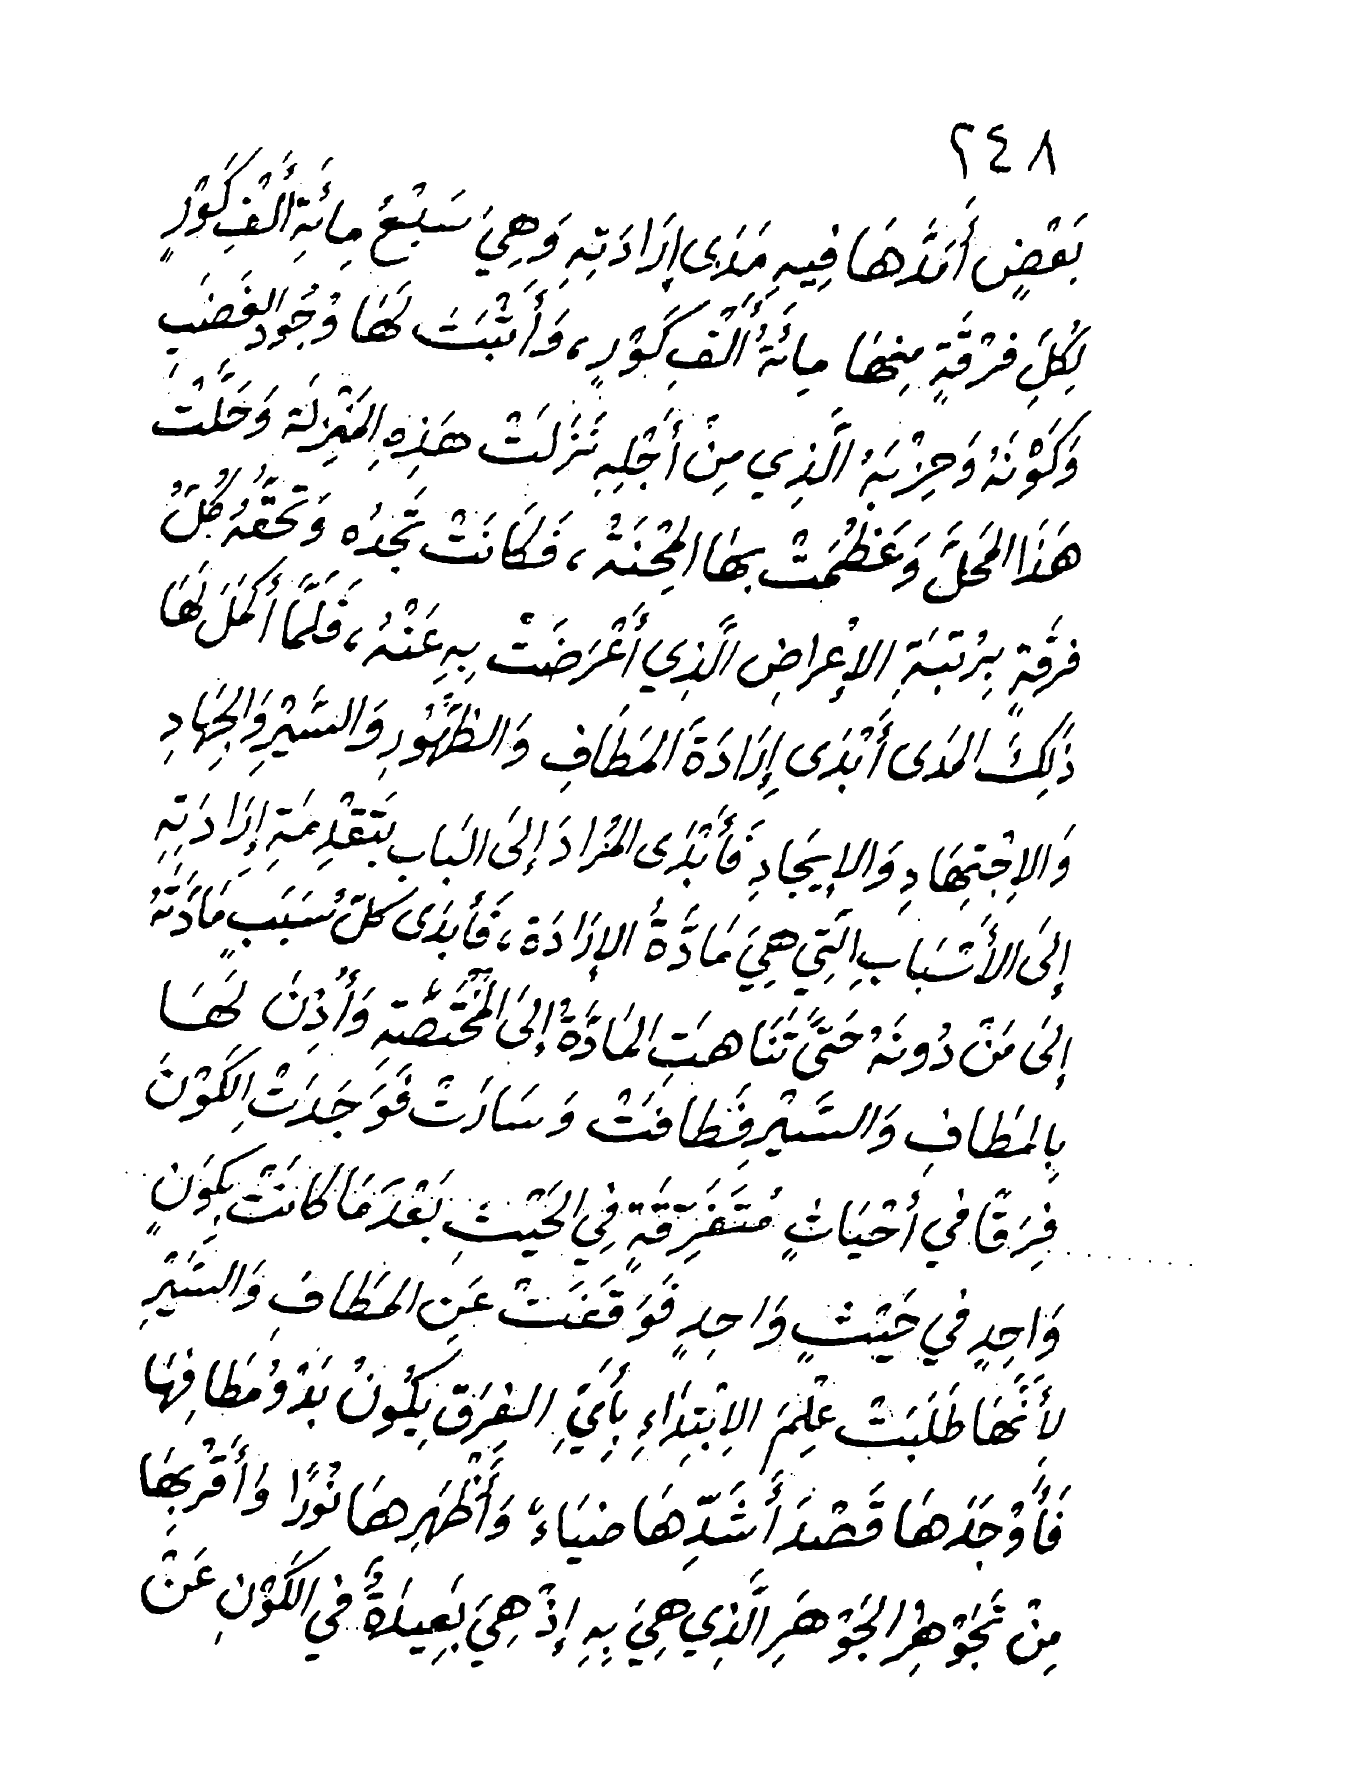 ٢٤٨
بَعْضٍ أَمَدَّهَا فِيهِ مَدَى إِرَادَتِهِ وَهِيَ سَبْعُ مِائَةِ أَلْفِ كَوْرٍ
لِكُلِّ فِرْقَةٍ مِنهَا مِائَةُ أَلْفِ كَوْرٍ، وَأَثْبَتَ لَهَا وُجُودَ الغَضَبِ
وَكَوْنَهُ وَحِزْبَهُ الَّذِي مِنْ أَجْلِهِ نَزَلَتْ هَذِهِ المَنْزِلَةَ وَحَلَّتْ
هَذَا المَحَلَّ وَعَظُمَتْ بِهَا المِحْنَةُ، فَكَانَتْ تَجِدُه وَتَحَقَّقَهُ كُلُّ
فِرقَةٍ بِرُتبَةِ الإِعْراضِ الَّذِي أَعْرَضَتْ بِهِ عَنْهُ، فَلَمَّا أَكْمَلَ لَهَا
ذَلِكَ المَدَى أَبْدَى إِرَادَةَ المَطَافِ وَالظُّهُورِ وَالسَّيْرِ وَالجِهَادِ
وَالاِجْتِهَادِ وَالإِيجَادِ فَأَبْدَى المُرَادَ إِلَى البَابِ بِتَقْدِمَةِ إِرَادَتِهِ
إِلَى الأَسْبَابِ الَّتِي هِيَ مَادَّةُ الإِرَادَة، فَأَبدَى كلُّ سَبَبٍ مَادَّتَهُ
إِلَى مَنْ دُونَهُ حَتَّى تَنَاهتِ المَادَّةُ إِلَى المُخْتَصَّةِ وَأُذِنَ لَهَا
بِالمَطَافِ وَالسَّيْرِ فَطَافَتْ وَسَارَتْ فَوَجَدَتْ الِكَوْنَ
فِرَقًا في أَحْيَاثٍ مُتَفَرِّقَةٍ فِي الحَيْثِ بَعْدَ مَا كَانَتْ بِكَونٍ
وَاحِدٍ في حَيْثٍ وَاحِدٍ فَوَقَفَتْ عَنِ المَطَافِ وَالسَّيْرِ
لأَنَّهَا طَلَبَتْ عِلْمَ الاِبْتِدَاءِ بِأَيِّ الفِرَقِ يَكُونُ بَدْوُ مَطَافِهَا
فَأَوْجَدَهَا قَصْدَ أَشَدِّهَا ضيَاءً وَأَظْهَرِهَا نُورًا وَأَقْرَبِهَا
مِنْ تَجَوْهُرِ الجَوْهَرِ الَّذِي هِيَ بِهِ إِذْ هِيَ بَعِيدَةٌ في الكَوْنِ عَنْ